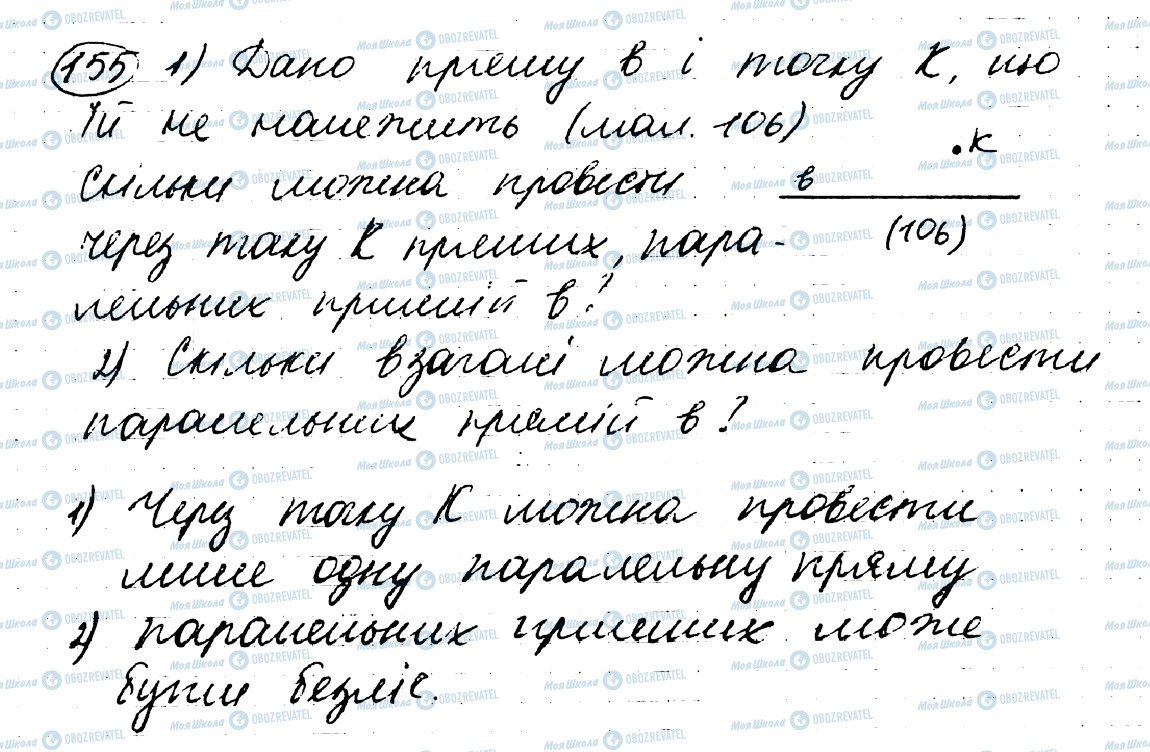 155 1) Дано пряму в і точку К, що
їй не належить (мал. 106)
.К
Скільки можна провести
в
через точку К прямих, пара-
(106)
лельних прямій в?
2) Скільки взагалі можна провести
паралельних прямій в?
1) Через точку К можна провести
лише одну паралельну пряму
2) паралельних прямих може
бути безліс.